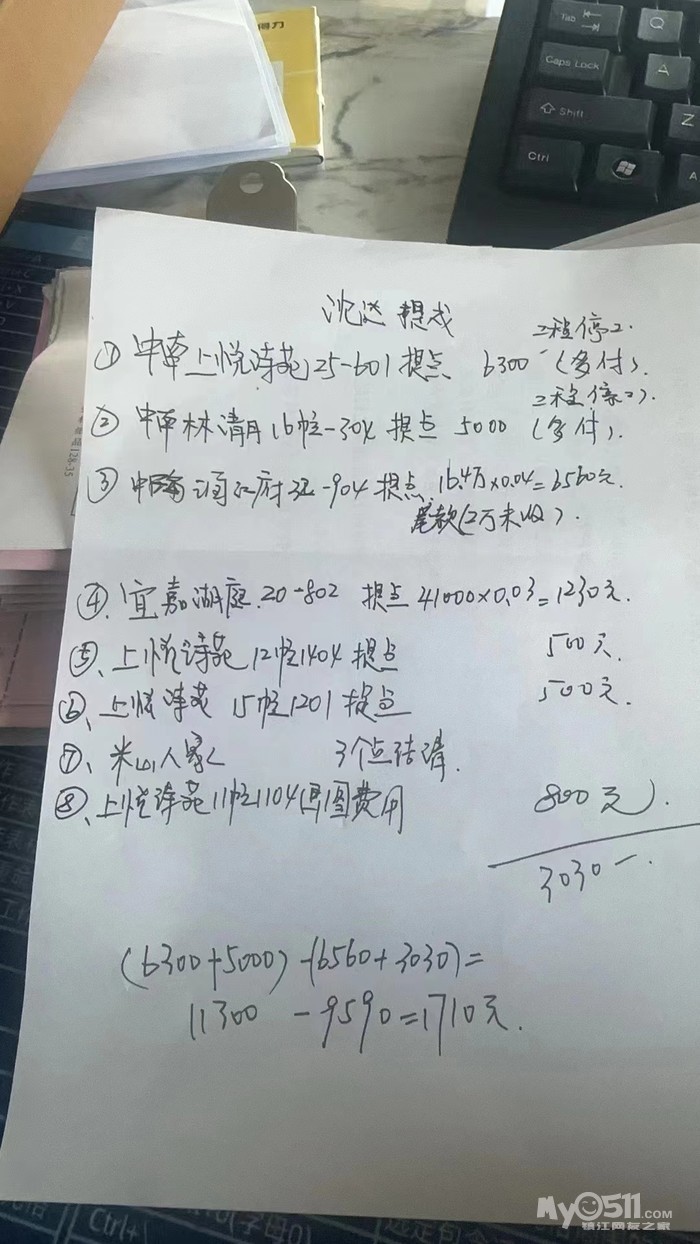 得力
Tab
Q
Caps Lock
A
Shift
Z
Ctrl
A
沈达 提成
工程停工.
① 中南上悦诗苑25-601提点 6300 (多付).
工程停工).
② 中南林清月16幢-304 提点 5000 (多付).
③ 江府 -904 提点. 16.4万×0.04=6560元.
尾款(2万未收).
④. 宜嘉湖庭.20-802 提点 41000×0.03=1230元.
⑤、上悦诗苑12幢1404提点 500元.
⑥、上悦诗苑 15幢1201提点 500元.
⑦、米山人家 3个点结清.
⑧、上悦诗苑11幢1104 图费用 800元).
3030
(6300+5000)-(6560+3030)=
11300 -9590=1710元.
Ctrl+
My0511.com
镇江网友之家